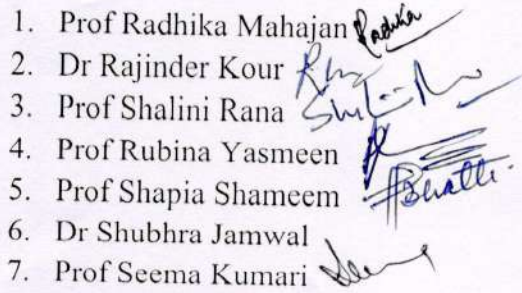 1. Prof Radhika Mahajan Radhika
2. Dr Rajinder Kour
3. Prof Shalini Rana
4. Prof Rubina Yasmeen
5. Prof Shapia Shameem Bhatti
6. Dr Shubhra Jamwal
7. Prof Seema Kumari